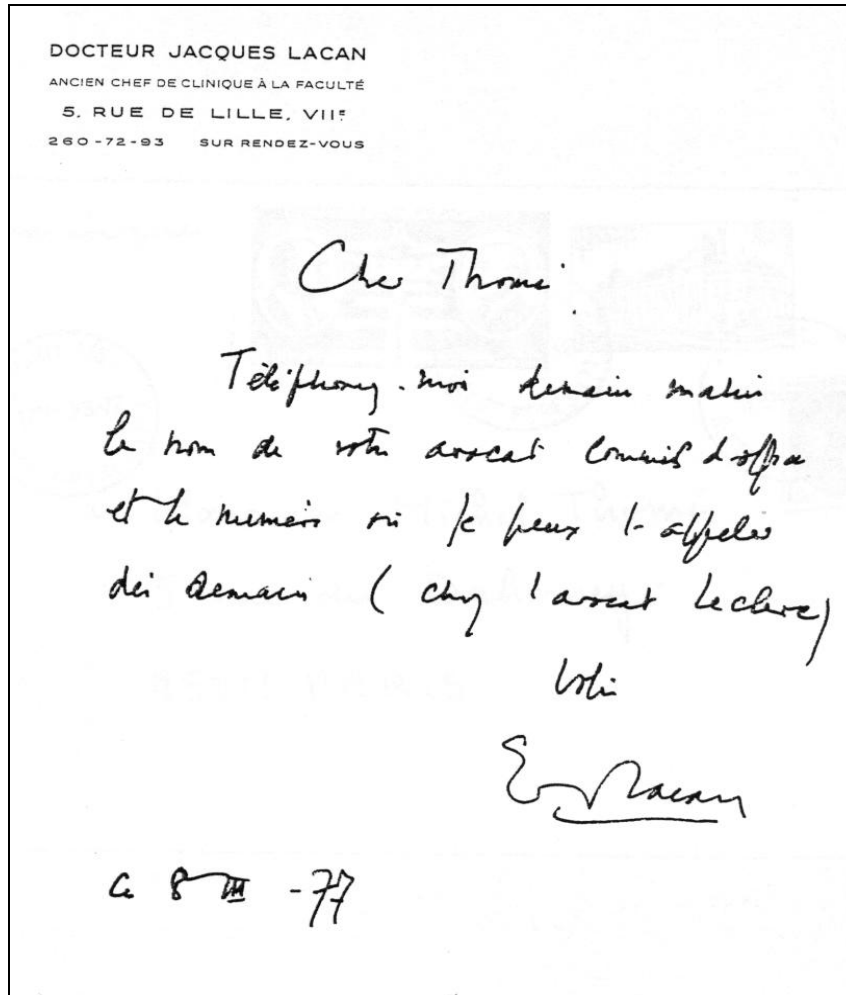 DOCTEUR JACQUES LACAN
ANCIEN CHEF DE CLINIQUE À LA FACULTÉ
5, RUE DE LILLE, VIIe
260-72-93 SUR RENDEZ-VOUS
Cher Thomé.
Téléphonez-moi demain matin
le nom de votre avocat commis d'office
et le numéro où je peux l'appeler
dès demain (chez l'avocat Leclerc)
Votre
Lacan
Ce 8 III -77